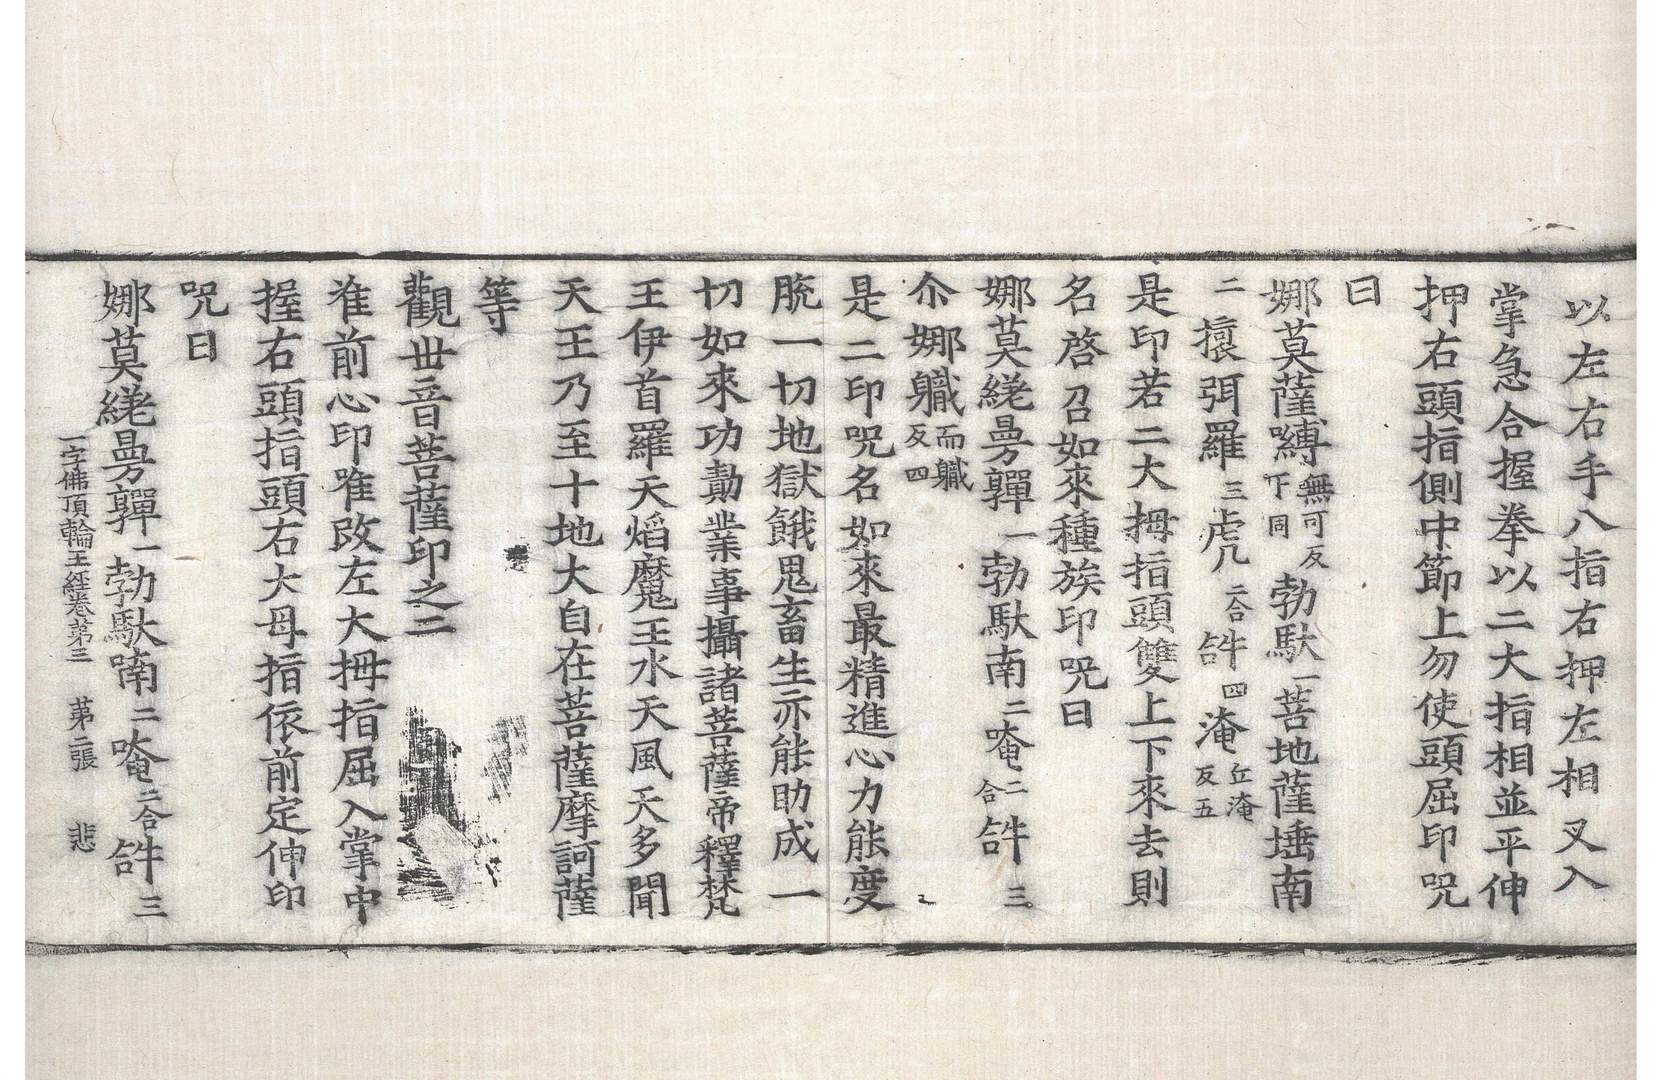 以左右手八指右押左相叉入
掌急合握拳以二大指相並平伸
押右頭指側中節上勿使頭屈印呪
曰
娜莫薩嚩無可反下同勃馱一菩地薩埵南
二攘弭羅三虎𠆙二合𤙖四淹丘淹反五
是印若二大拇指頭雙上下來去則
名啓召如來種族印呪曰
娜莫繞曼亸一勃馱南二唵二合𤙖三
尒娜軄而軄反四
是二印呪名如來最精進心力能度
脫一切地獄餓鬼畜生亦能助成一
切如來功勣業事攝諸菩薩帝釋梵
王伊首羅天焰魔王水天風天多聞
天王乃至十地大自在菩薩摩訶薩
等
觀丗音菩薩印之二
准前心印唯改左大拇指屈入掌中
握右頭指頭右大母指依前定伸印
呪曰
娜莫繞曼亸一勃馱喃二唵二合𤙖三
一字佛頂輪王經卷苐三 苐二張 悲